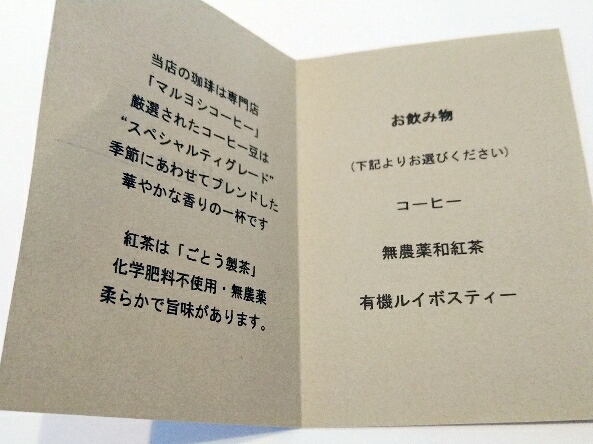 当店の珈琲は専門店
「マルヨシコーヒー」
厳選されたコーヒー豆は
“スペシャルティグレード”
季節にあわせてブレンドした
華やかな香りの一杯です
紅茶は「ごとう製茶」
化学肥料不使用・無農薬
柔らかで旨味があります。
お飲み物
（下記よりお選びください）
コーヒー
無農薬和紅茶
有機ルイボスティー